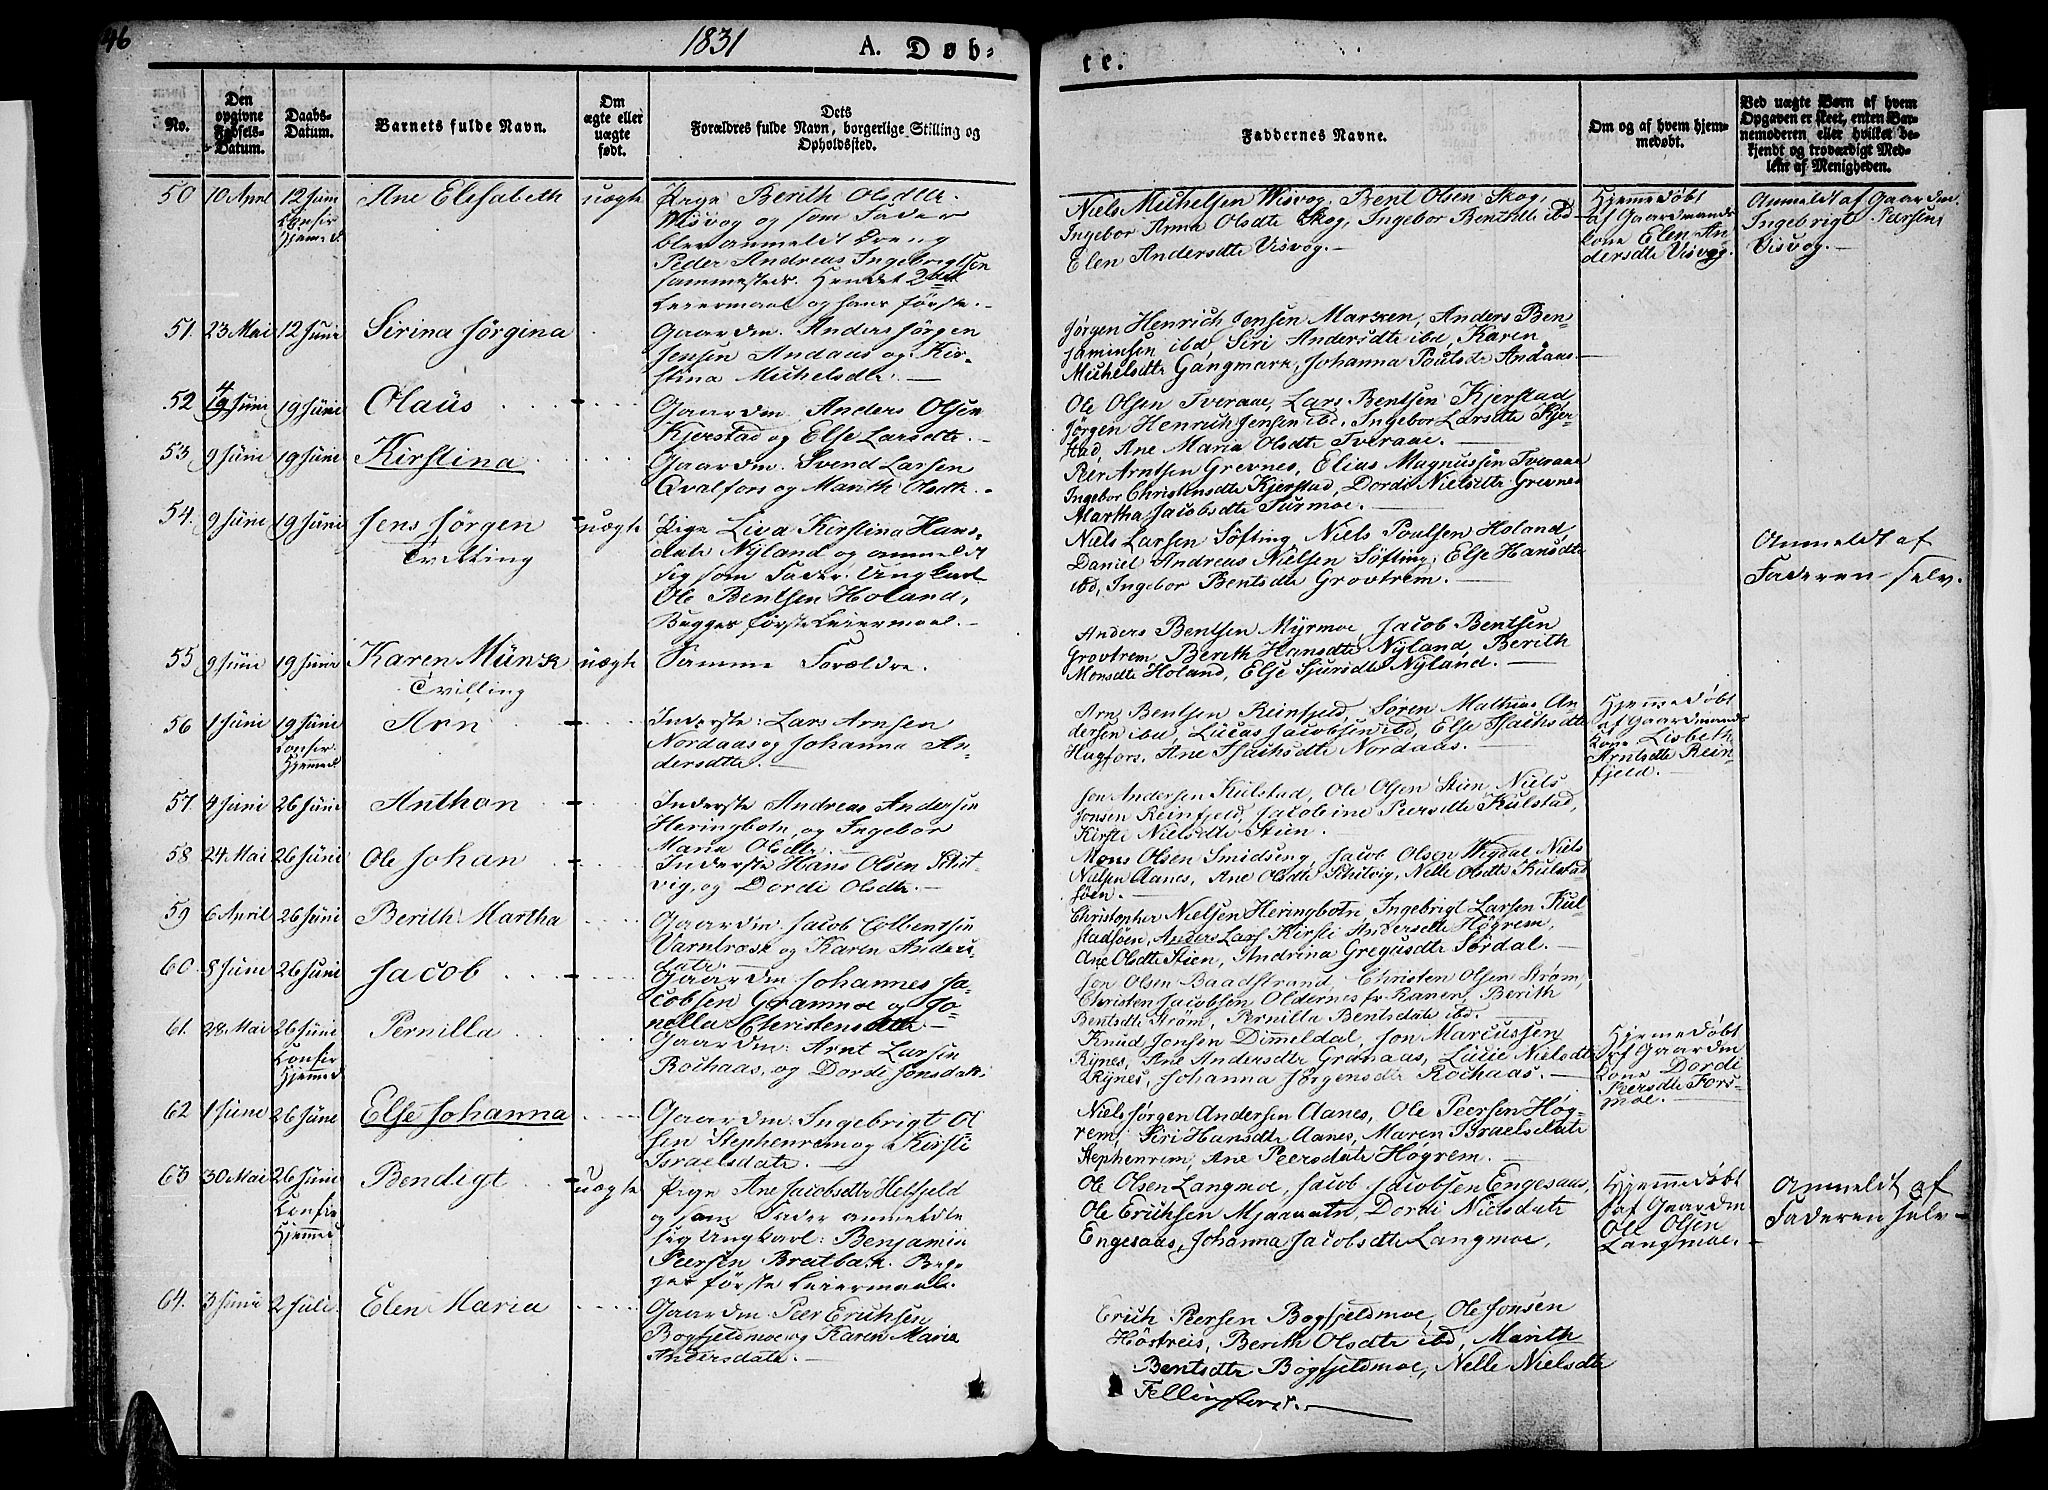 46
1831
A. Døb-
te.
No.
Den
opgivne
Fødsels-
Datum.
Daabs-
Datum.
Barnets fulde Navn.
Om
ægte eller
uægte
født.
Dets
Forældres fulde Navn, borgerlige Stilling og
Opholdssted.
Faddernes Navne.
Om og af hvem hjem-
medøbt.
Ved uægte Børn af hvem
Opgaven er skeet, enten Bar-
nemoderen eller hvilket be-
kjendt og troværdigt Med-
lem af Menigheden.
50 10 April 12 Juni Ane Elisabeth uægte Pige Berith Olsdtr
Confir
Hjemmed
Wisvog og som Fader
blev anmeldt Dreng
Peder Andreas Ingebrigtsen
sammesteds. Hendes 2det
Leiermaal og hans første.
Niels Michelsen Wisvog, Bent Olsen Skog,
Ingebor Anna Olsdtr Skog, Ingebor Bentsdtr ibd
Elen Andersdtr Visvog.
Hjemmedøbt
af Gaardmands
kone Elen An
dersdtr Visvog.
Anmeldt af Gaardm.
Ingebrigt Pærsen,
Visvog.
51. 23 Mai 12 Juni Sirina Jørgina Gaardm. Anders Jørgen
Jensen Andaas og Kir-
stina Michelsdtr.
Jørgen Henrich Jensen Marken, Anders Ben-
jaminsen ibd Siri Andersdtr ibd, Karen
Michelsdtr Gangmark, Johanna Poulsdtr Andaas
52 4 Juni 19 Juni Olaus Gaardm Anders Olsen
Kjerstad og Else Larsdtr.
Ole Olsen Tveraae, Lars Bentsen Kjerstad,
Jørgen Henrich Jensen ibd. Ingebor Larsdtr Kjer-
stad, Ane Maria Olsdtr Tveraae.
53 9 Juni 19 Juni Kirstina Gaardm. Svend Larsen
Qvalfors og Marith Olsdtr.
Peer Arntsen Grevnes, Elias Magnussen Tveraae
Ingebor Christensdtr Kjerstad, Dordi Nielsdtr Grevnes
Martha Jacobsdtr Turmoe.
54. 9 Juni 19 Juni Jens Jørgen uægte Pige Liva Kirstina Hans-
Tvilling
datr Nyland og anmeldt
sig som Fader: Ungkarl
Ole Bentsen Holand,
Begges første Leiermaal.
Niels Larsen Søfting, Niels Poulsen Holand
Daniel Andreas Nielsen Søfting, Else Hansdtr
ibd, Ingebor Bentsdtr Grovtrem.
Anmeldt af
Faderen selv.
55 9 Juni 19 Juni Karen Münsk uægte Samme Forældre.
Tvilling
Anders Bentsen Myrmoe, Jacob Bentsen
Grovtrem, Berith Hansdtr Nyland, Berith
Monsdtr Holand, Else Sjursdtr Nyland.
56 1 Juni 19 Juni Arn Inderste: Lars Arnsen
Confir.
Hjemmed
Nordaas og Johanna An-
dersdtr.
Arn Bentsen Reinfjeld, Søren Mathias An
dersen ibd, Lucas Jacobsen ibd, Else Isachsdtr
Hagfors, Ane Isachsdtr Nordaas.
Hjemmedøbt
af Gaardmands
kone Lisbeth
Arntsdtr Rein
fjeld.
57 4 Juni 26 Juni Anthon Inderste Andreas Andersen
Heringbotn, og Ingebor
Maria Olsdtr.
Jon Andersen Kulstad, Ole Olsen Stien, Niels
Jonsen Reinfjeld, Jacobine Peersdtr Kulstad,
Kirste Nielsdtr Stien.
58 24. Mai 26 Juni Ole Johan Inderste Hans Olsen Skit
vig, og Dordi Olsdtr.
Mons Olsen Smidseng, Jacob Olsen Wigdal Niels
Nielsen Aanes, Ane Olsdtr Skitvig, Nille Olsdtr Kulstad
søen.
59 6 April 26 Juni Berith Martha Gaardm: Jacob Colbentsen
Varntrosk og Karen Anders
datr.
Christopher Nielsen Heringbotn, Ingebrigt Larsen Kul-
stadsøen, Anders Lars Kirsti Andersdtr Høgrem,
Ane Olsdtr Stien, Andrina Gregusdtr Sørdal.
60 8 Juni 26 Juni Jacob Gaardm Johannes Ja-
cobsen Granmoe og Jo-
nella Christensdtr
Jon Olsen Baadstrand, Christen Olsen Strøm,
Christen Jacobsen Oldernes fr Ranen, Berith
Bentsdtr Strøm, Pernilla Bentsdatr ibd.
61. 28. Mai 26 Juni Pernilla Gaardm: Arnt Larsen
Confir
Hjemmed
Rochaas, og Dordi Jonsdatr
Knud Jonsen Dimeldal, Jon Marcussen
Rynes, Ane Andersdtr Granaas, Lucie Nielsdtr
Rynes, Johanna Jørgensdtr Rochaas.
Hjemmedøbt
af Gaardm
kone Dordi
Peersdtr Fors-
moe.
62 1 Juni 26 Juni Else Johanna Gaardm: Ingebrigt Ol
sen Stephenrem og Kirsti
Israelsdatr.
Niels Jørgen Andersen Aanes, Ole Peersen Høg-
rem, Siri Hansdtr Aanes, Maren Israelsdatr
Stephenrem, Ane Peersdatr Høgrem.
63 30 Mai 26 Juni Bendigt uægte Pige Ane Jacobsdtr Helfjeld
Confir
Hjemmed
og som Fader anmeldte
sig Ungkarl: Benjamin
Peersen Bratbak. Beg
ges første Leiermaal.
Ole Olsen Langmoe, Jacob Jacobsen Engesaas,
Ole Erichsen Mjaavatn, Dordi Nielsdatr
Engesaas, Johanna Jacobsdtr Langmoe,
Hjemmedøbt
af Gaardm
Ole Olsen
Langmoe.
Anmeldt af
Faderen selv
64. 3 Juni 2 Juli. Elen Maria Gaardm: Peer Erichsen
Bogfjeldmoe og Karen Maria
Andersdatr.
Erich Peersen Bogfjeldmoe, Ole Jonsen
Høstreis, Berith Olsdtr ibd, Marith
Bentsdtr Bogfjeldmoe, Nelle Nielsdtr